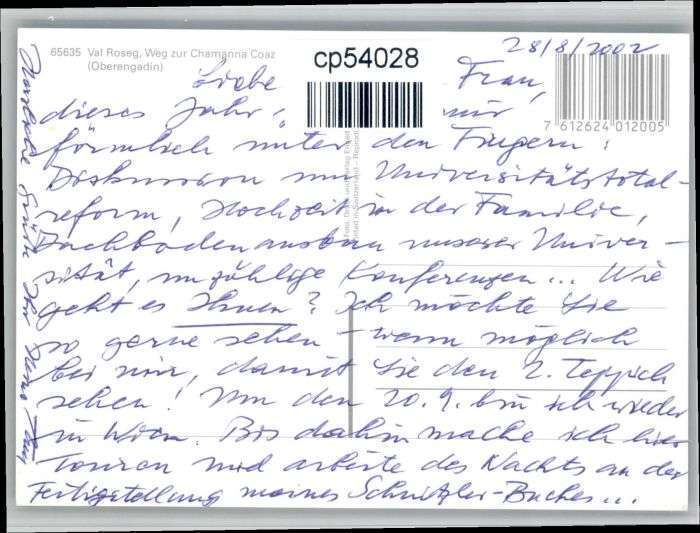 28/8/2002
65635 Val Roseg, Weg zur Chamanna Coaz
(Oberengadin)
cp54028
7 612624 012005
Liebe Frau,
dieses Jahr, mir
förmlich unter den Fingern:
Diskussion um Universitätstotal-
reform, Hochzeit in der Familie,
Dachbodenausbau unserer Univer-
sität, unzählige Konferenzen... Wie
geht es Ihnen? Ich möchte Sie
so gerne sehen – wenn möglich
bei mir, damit Sie den 2. Teppich
sehen! Um den 20.9. bin ich wieder
in Wien. Bis dahin mache ich hier
Touren und arbeite des Nachts an der
Fertigstellung meines Schnitzler-Buches...
Herzliche Grüße Ihr